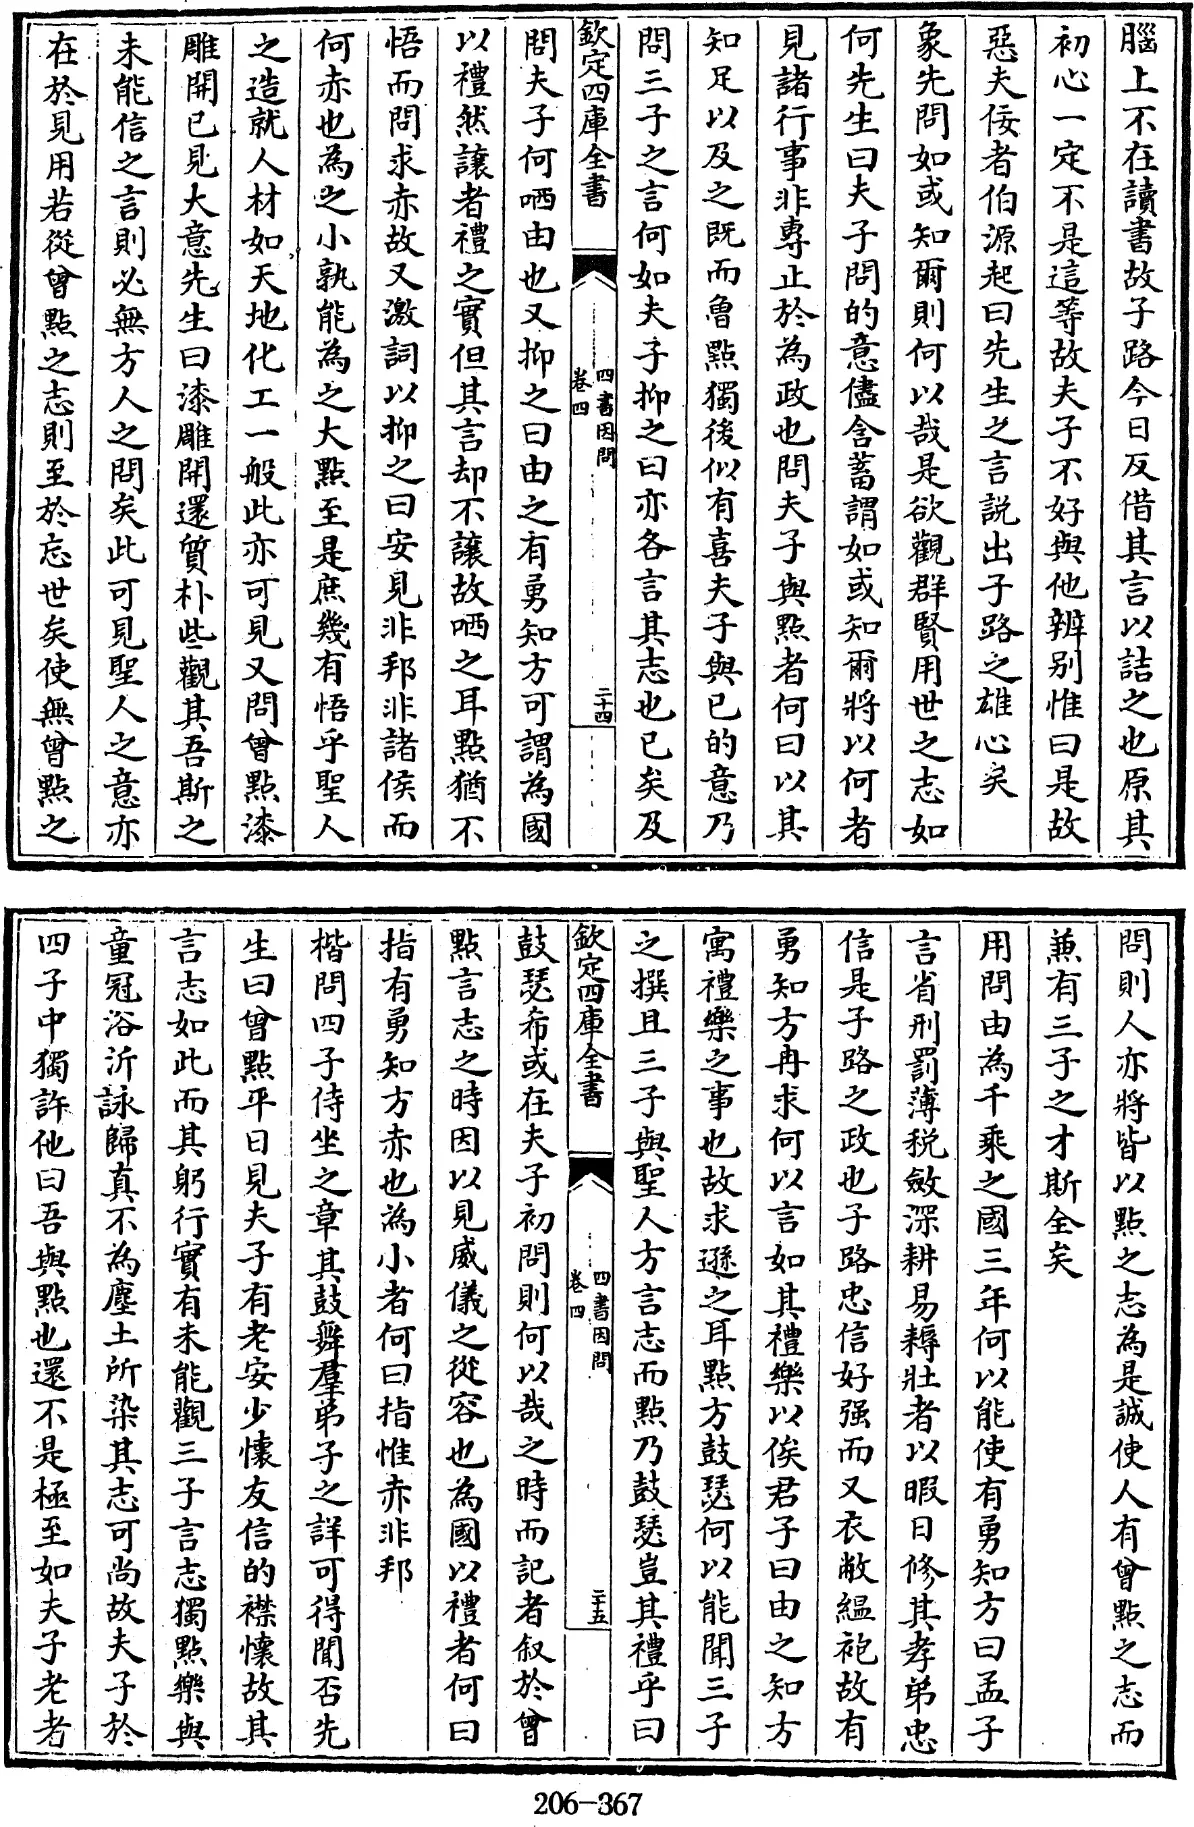 腦上不在讀書故子路今日反借其言以詰之也原其
初心一定不是這等故夫子不好與他辨别惟曰是故
惡夫佞者伯源起曰先生之言説出子路之雄心矣
象先問如或知爾則何以哉是欲觀群賢用世之志如
何先生曰夫子問的意儘含蓄謂如或知爾將以何者
見諸行事非專止於為政也問夫子與點者何曰以其
知足以及之既而魯點獨後似有喜夫子與已的意乃
問三子之言何如夫子抑之曰亦各言其志也已矣及
欽定四庫全書
四書因問
卷四
二十四
問夫子何哂由也又抑之曰由之有勇知方可謂為國
以禮然讓者禮之實但其言却不讓故哂之耳點猶不
悟而問求赤故又激詞以抑之曰安見非邦非諸侯而
何赤也為之小孰能為之大點至是庶幾有悟乎聖人
之造就人材如天地化工一般此亦可見又問曾點漆
雕開已見大意先生曰漆雕開還質朴些觀其吾斯之
未能信之言則必無方人之問矣此可見聖人之意亦
在於見用若從曾點之志則至於忘世矣使無曾點之
問則人亦將皆以點之志為是誠使人有曾點之志而
兼有三子之才斯全矣
用問由為千乘之國三年何以能使有勇知方曰孟子
言省刑罰薄税斂深耕易耨壯者以暇日修其孝弟忠
信是子路之政也子路忠信好强而又衣敝緼袍故有
勇知方冉求何以言如其禮樂以俟君子曰由之知方
寓禮樂之事也故求遜之耳點方鼓瑟何以能聞三子
之撰且三子與聖人方言志而點乃鼓瑟豈其禮乎曰
欽定四庫全書
四書因問
卷四
二十五
鼓瑟希或在夫子初問則何以哉之時而記者叙於曾
點言志之時因以見威儀之從容也為國以禮者何曰
指有勇知方赤也為小者何曰指惟赤非邦
楷問四子侍坐之章其鼓舞羣弟子之詳可得聞否先
生曰曾點平日見夫子有老安少懷友信的襟懷故其
言志如此而其躬行實有未能觀三子言志獨點樂與
童冠浴沂詠歸真不為塵土所染其志可尚故夫子於
四子中獨許他曰吾與點也還不是極至如夫子老者
206-367